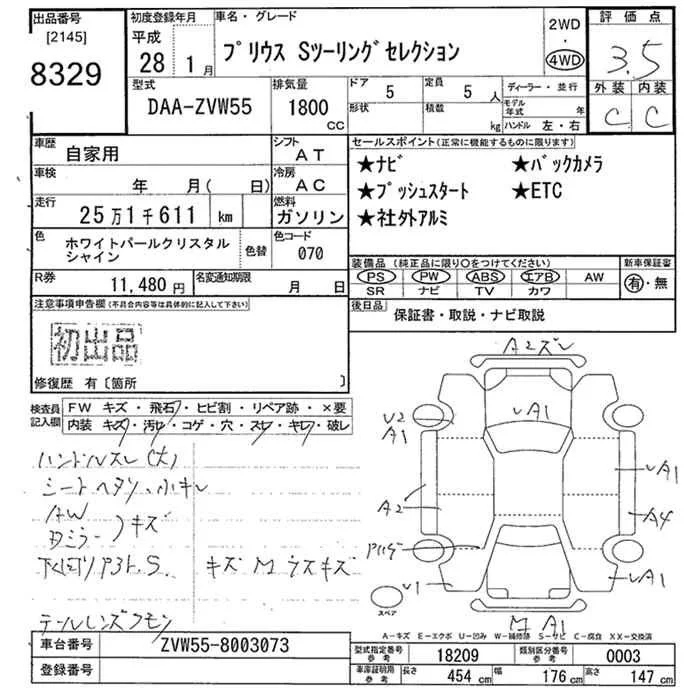 出品番号
[2145]
8329
初度登録年月
平成
28 1 月
車名・グレード
プリウス Sツーリングセレクション
2WD
・
4WD
評価点
3.5
外装 内装
C C
型式
DAA-ZVW55
排気量
1800
CC
ドア
5
形状
定員
5 人
積数
kg
ディーラー・並行
モデル年式 年
ハンドル 左・右
車歴
自家用
シフト
AT
車検
年 月( 日)
冷房
AC
走行
25万1千611 km
燃料
ガソリン
色
ホワイトパールクリスタル
シャイン
色替
色コード
070
R券
11,480 円
名変通知期限
月 日
セールスポイント(正常に機能するものに限ります)
★ナビ ★バックカメラ
★プッシュスタート ★ETC
★社外アルミ
装備品 (純正品に限り○をつけてください)
新車保証書
PS PW ABS エアB AW
SR ナビ TV カワ
有・無
後日品
保証書・取説・ナビ取説
注意事項申告欄(不具合内容等は具体的に記入して下さい)
初出品
修復歴 有〔箇所 〕
検査員
記入欄
FW キズ・飛石・ヒビ割・リペア跡・×要
内装 キズ・汚レ・コゲ・穴・スレ・キレ・破レ
ハンドルスレ(大)
シートヘタリ、小キレ
AW
Dミラー
キズ
下廻り
S. キズ M ラスキズ
テールレンズ
A2ズレ
UA1
U2
A1
UA1
A2
A4
U1
UA1
スペア
M A1
A-キズ E-エクボ U-凹み W-補修跡 S-サビ C-腐食 XX-交換済
車台番号
ZVW55-8003073
登録番号
型式指定番号
参考
18209
類別区分番号
参考
0003
車庫証明用
参考
長さ 454 cm
幅 176 cm
高さ 147 cm